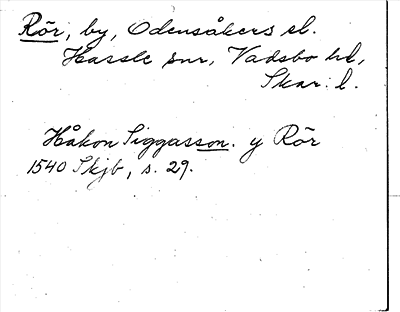 Rör, by, Odensåkers sl.
Hassle snr, Vadsbo hd,
Skar. l.
Håkon Siggasson. y Rör
1540 Skjb, s. 29.